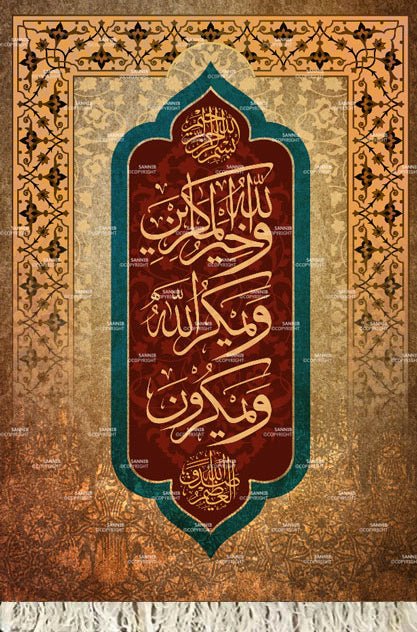 بسم الله الرحمن الرحيم
ويمكرون
ويمكر الله
والله خير الماكرين
صدق الله العظيم
SANNIB
©COPYRIGHT